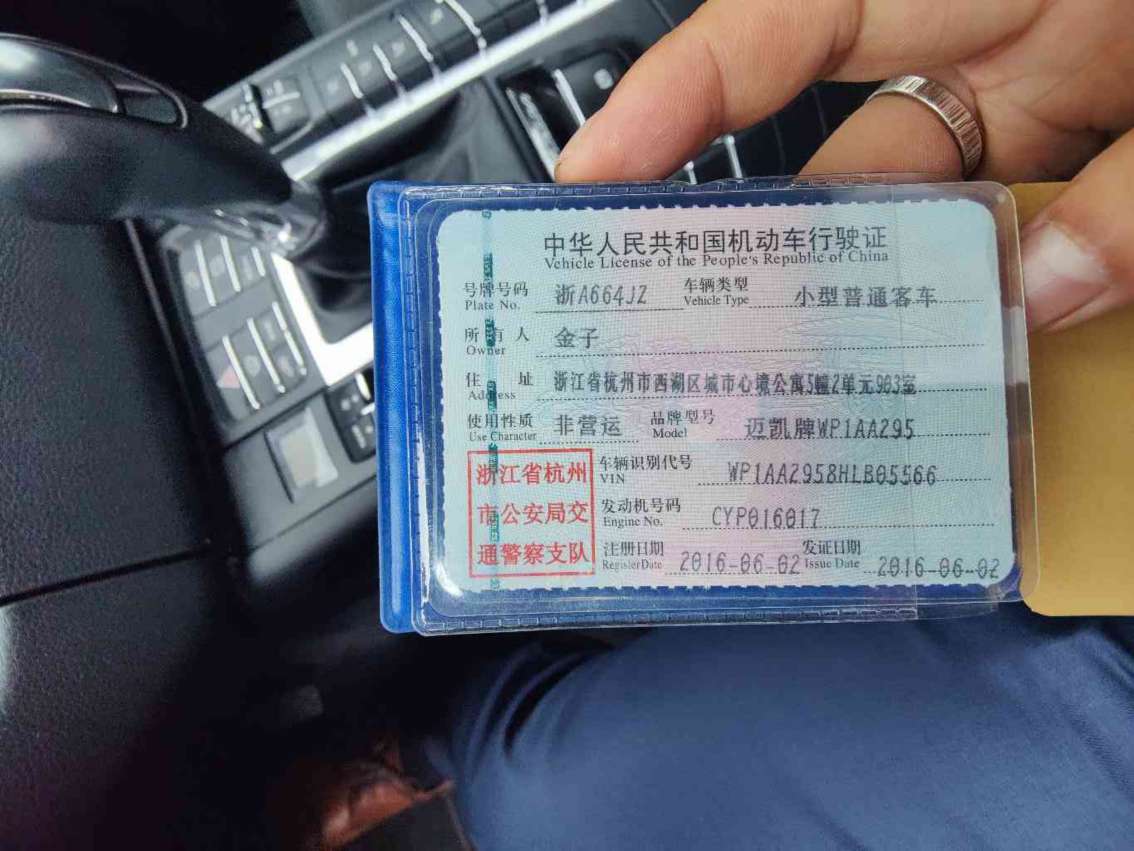 中华人民共和国机动车行驶证
Vehicle License of the People's Republic of China
号牌号码 浙A664JZ 车辆类型 小型普通客车
Plate No. Vehicle Type
所有人 金子
Owner
住址 浙江省杭州市西湖区城市心境公寓5幢2单元903室
Address
使用性质 非营运 品牌型号 迈凯牌WP1AA295
Use Character Model
浙江省杭州
市公安局交
通警察支队
车辆识别代号 WP1AA2958HLB05566
VIN
发动机号码 CYP016017
Engine No.
注册日期 2016-06-02 发证日期 2016-06-02
Register Date Issue Date